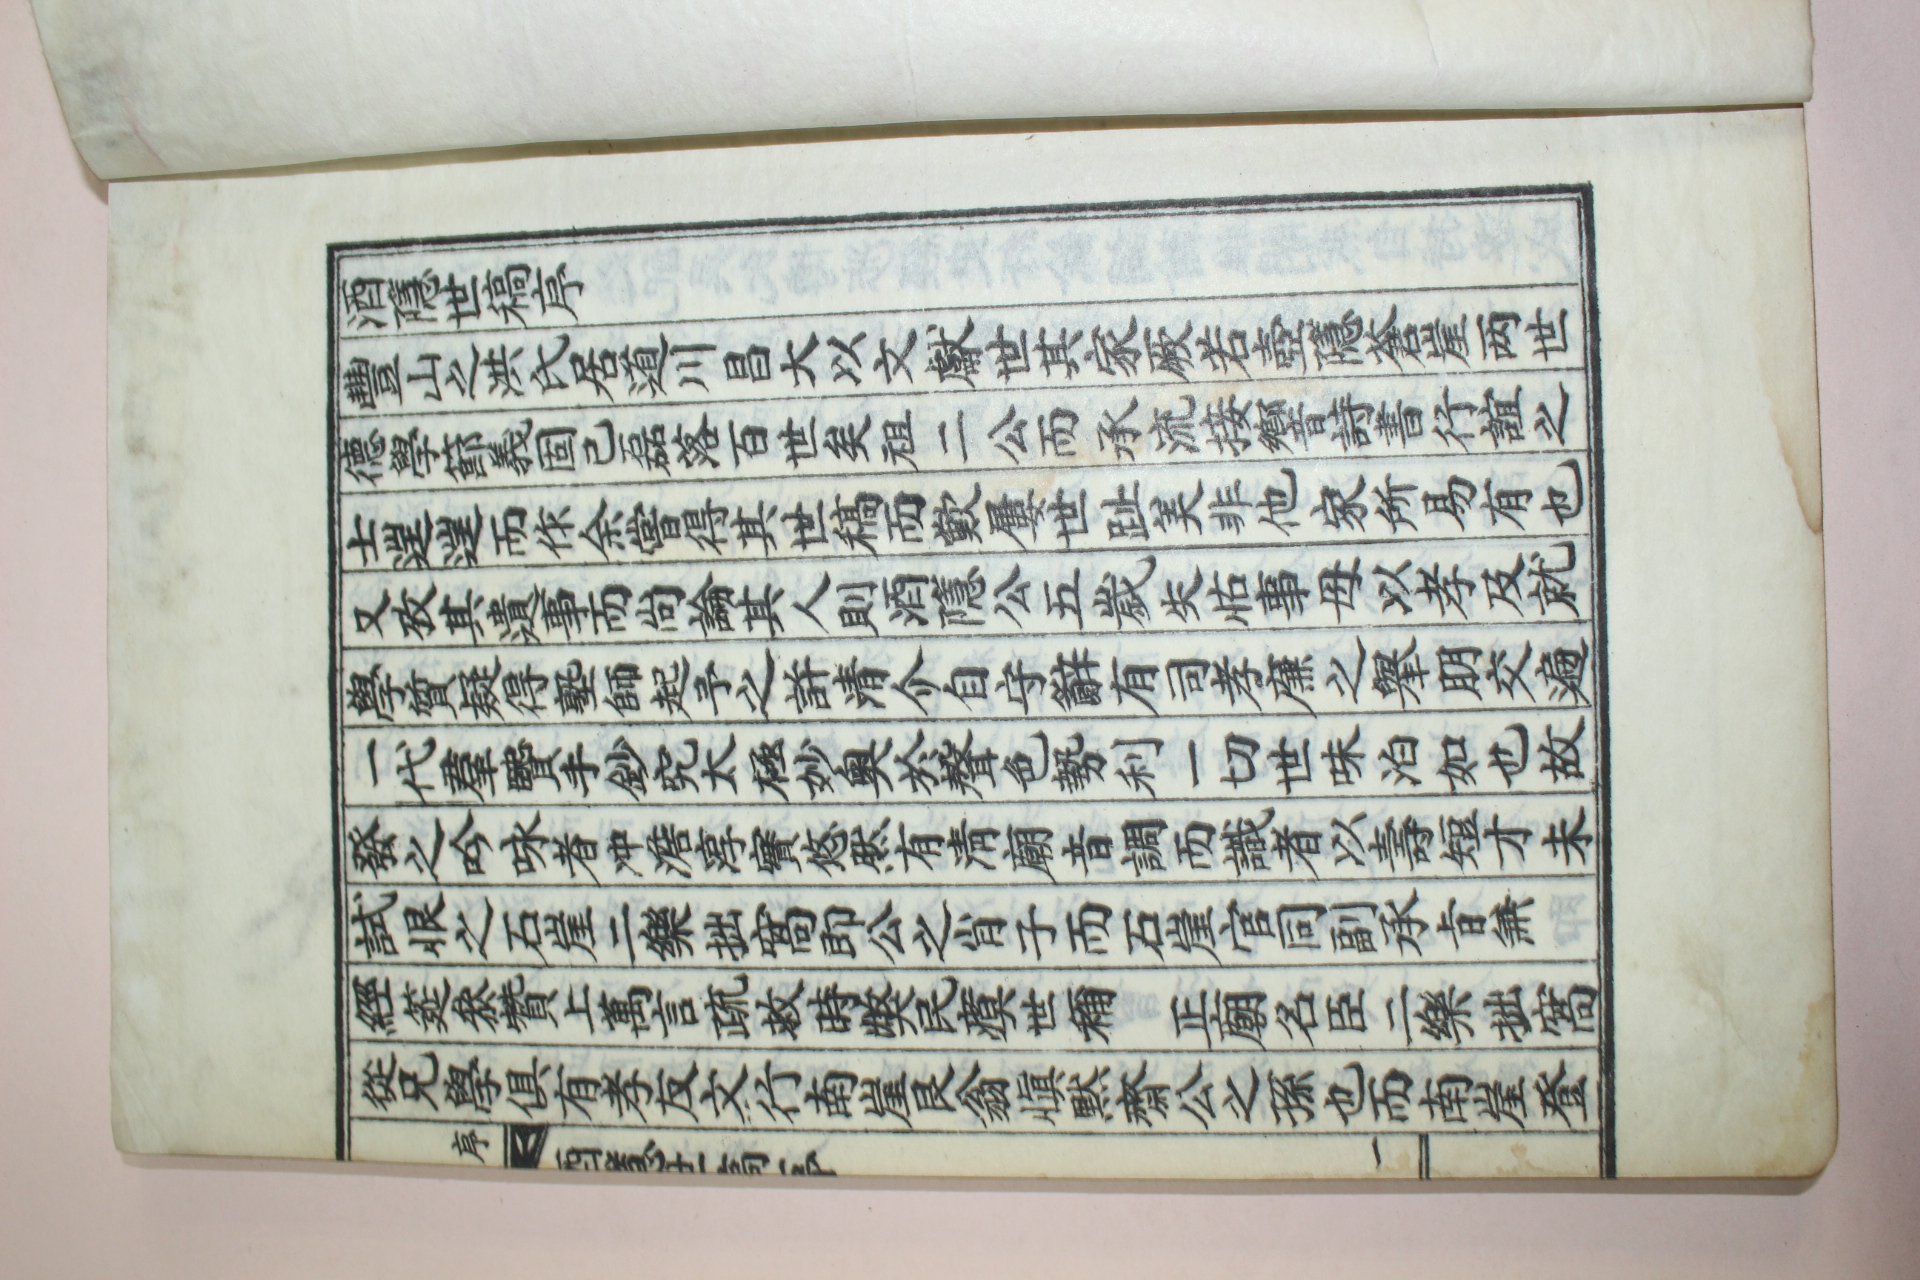 酒隱世稿序
豐山之洪氏居道川昌大以文獻世其家厥若壺隱崖兩世
德學節義固已磊落百世矣祖二公而承流接響詩書行誼之
士遑遑而作余嘗得其世稿而歎屢世趾美非他家所易有也
又攷其遺事而尙論其人則酒隱公五歲失怙事母以孝及就
學質疑得塾師起予之許清介自守辭有司孝廉之擧朋交遍
一代羣賢手鈔究太極妙奧於聲色勢利一切世味泊如也故
發之吟咏者冲澹淳實悠然有清廟音調而識者以壽短才未
試恨之石崖二樂拙窩卽公之肖子而石崖官同副承旨兼
經筵參贊上萬言疏救時獘民瘼世稱 正廟名臣二樂拙窩
從兄學俱有孝友文行南崖艮翁愼默齋公之孫也而南崖登
序
酒隱世稿序
一